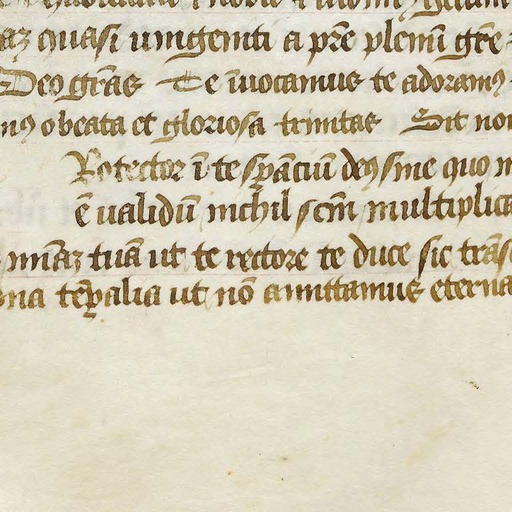 habitauit i nobis
az quasi unigeniti a pr̄e plenū gr̄e
Deo gr̄as Te īuocamus te adoramꝰ
o beata et gloriosa trinitas Sit
Rotector ī te sp̄anciū deꝰ sine quo
ē ualidū nichil sc̄m multiplica
mīaz tuā ut te rectore te duce sic trās
na tēp̄alia ut nō amittamus eterna